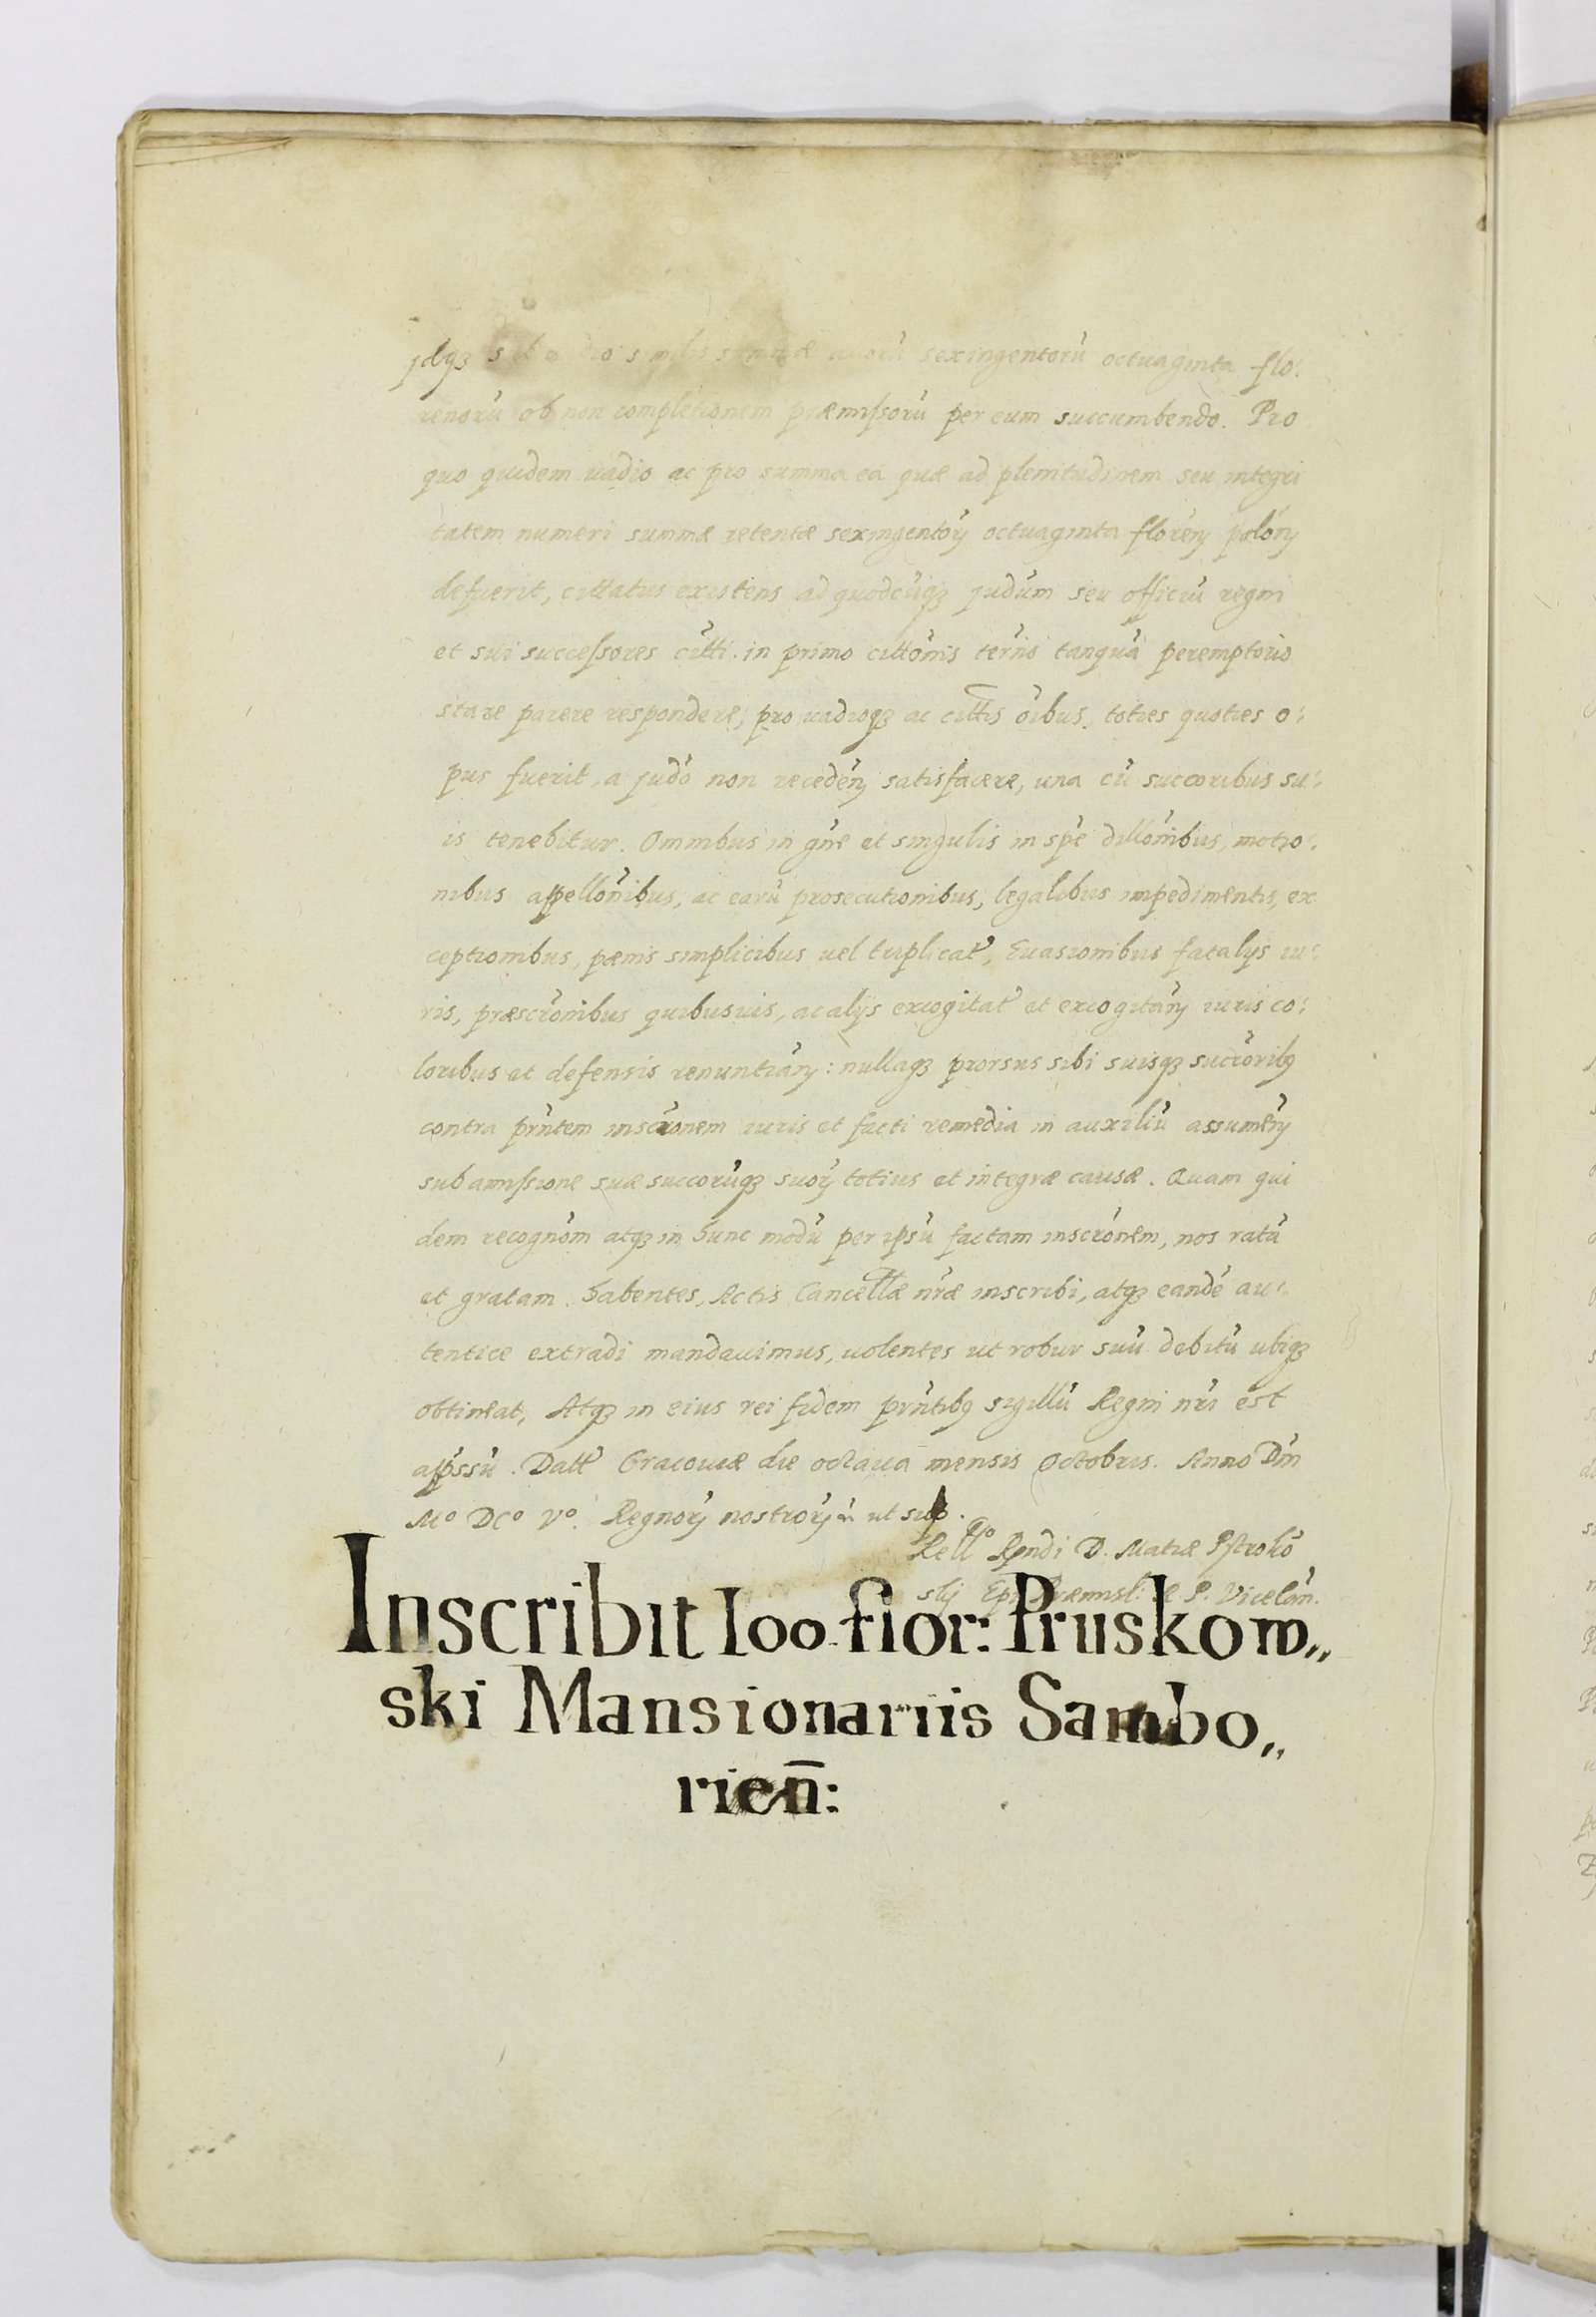 jdqз sub vadio similis summæ sexingentorũ octuaginta flo:
renorũ ob non completionem præmissorũ per eum succumbendo. Pro
quo quidem vadio ac pro summa ea quæ ad plenitudinem seu integri
tatem numeri summæ retentæ sexingentorӡ octuaginta florenӡ polonӡ
defuerit, cittatus existens ad quodcũqз judũm seu officiũ regni
et sui successores citti. in primo cittonis termo tanquã peremptorio
stare parere respondere, pro vadioqз ac cittis oibus, toties quoties o:
pus fuerit, a judo non recedenӡ satisfacere, una cũ succoribus su:
is tenebitur. Omnibus in gne et singulis in spe dillonibus, motio:
nibus appellonibus, ac earũ prosecutionibus, legalibus impedimentis, ex
ceptionibus, pænis simplicibus vel triplicat, Evasionibus fatalÿs iu:
ris, præscronibus quibusuis, ac alÿs excogitat et excogitanӡ iuris co:
loribus et defensis renuntianӡ: nullaqз prorsus sibi suisqз succoribӡ
contra pñtem inscronem iuris et facti remedia in auxiliũ assumenӡ
sub amissione suæ succorũqз suorӡ totius et integræ causæ. Quam qui
dem recognom atqз in hunc modũ per ipsũ factam inscronem, nos ratã
et gratam habentes, Actis Cancellæ nræ inscribi, atqз eandẽ au:
tentice extradi mandauimus, uolentes ut robur suũ debitũ ubiqз
obtineat, Atqз in eius rei fidem pñtibӡ sigillũ Regni nri est
appssũ. Datt Cracouiæ die octaua mensis Octobris. Anno Dni
Mº DCº Vº. Regnorӡ nostrorӡ ut sup.
Rellº Rrndi D. Matiæ Pstroko
skÿ Epi Præmisl: R. P. Vicecan.
Inscribit 100 flor: Pruskow„
ski Mansionariis Sambo„
rien̄: